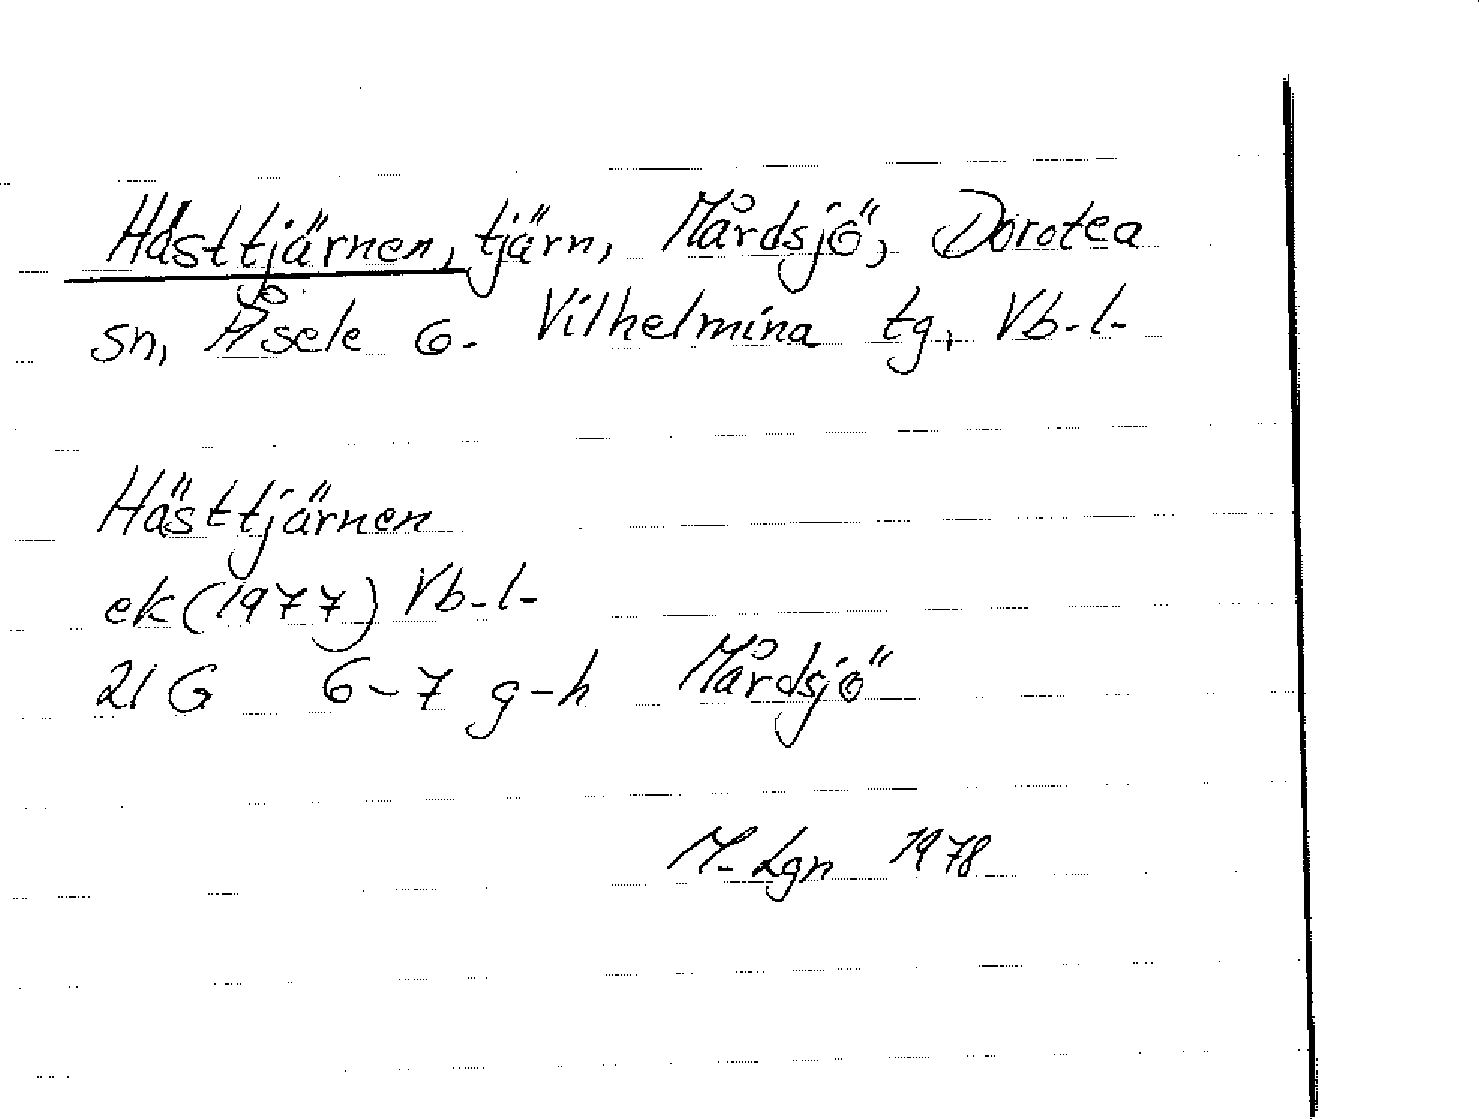 Hästtjärnen, tjärn, Mårdsjö, Dorotea
sn, Åsele o. Vilhelmina tg, Vb.l.
Hästtjärnen
ek (1977) Vb.l.
21 G 6-7 g-h Mårdsjö
M. Lgn 1978